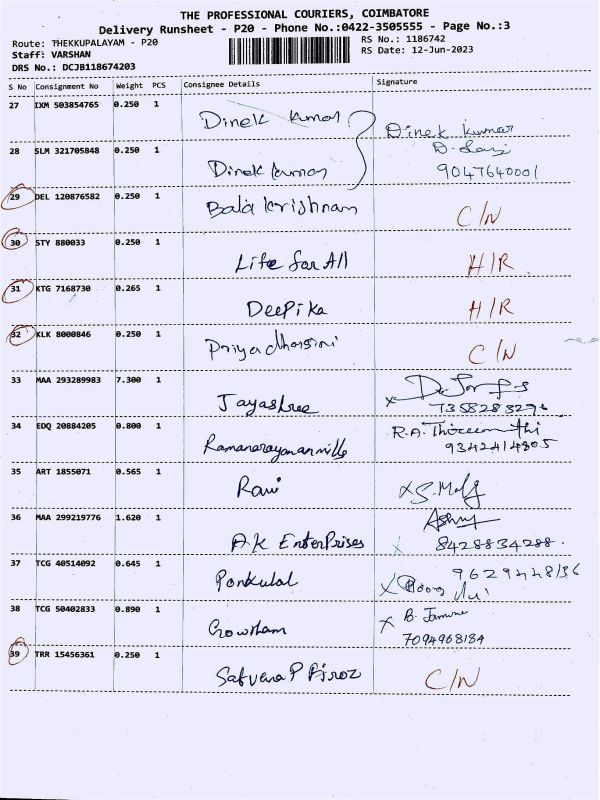 THE PROFESSIONAL COURIERS, COIMBATORE
Delivery Runsheet - P20 - Phone No.:0422-3505555 - Page No.:3
Route: THEKKUPALAYAM - P20
RS No.: 1186742
Staff: VARSHAN
RS Date: 12-Jun-2023
DRS No.: DCJB118674203
S No Consignment No Weight PCS Consignee Details Signature
27 IXM 503854765 0.250 1
Dinek kumar Dinek kumar
28 SLM 321705848 0.250 1
Dinek kumar 9047640001
29 DEL 120876582 0.250 1
Bala krishnan C/N
30 STY 880033 0.250 1
Life for All H/R
31 KTG 7168730 0.265 1
Deepika H/R
32 KLK 8000846 0.250 1
Priyadharsini C/N
33 MAA 293289983 7.300 1
Jayashree
34 EDQ 20884205 0.800 1
R.A.
9342414805
35 ART 1855071 0.565 1
Ravi
36 MAA 299219776 1.620 1
A.K EnterPrises 8428834288.
37 TCG 40514092 0.645 1
Ponkulal
38 TCG 50402833 0.890 1
Gowtham
7094968184
39 TRR 15456361 0.250 1
C/N